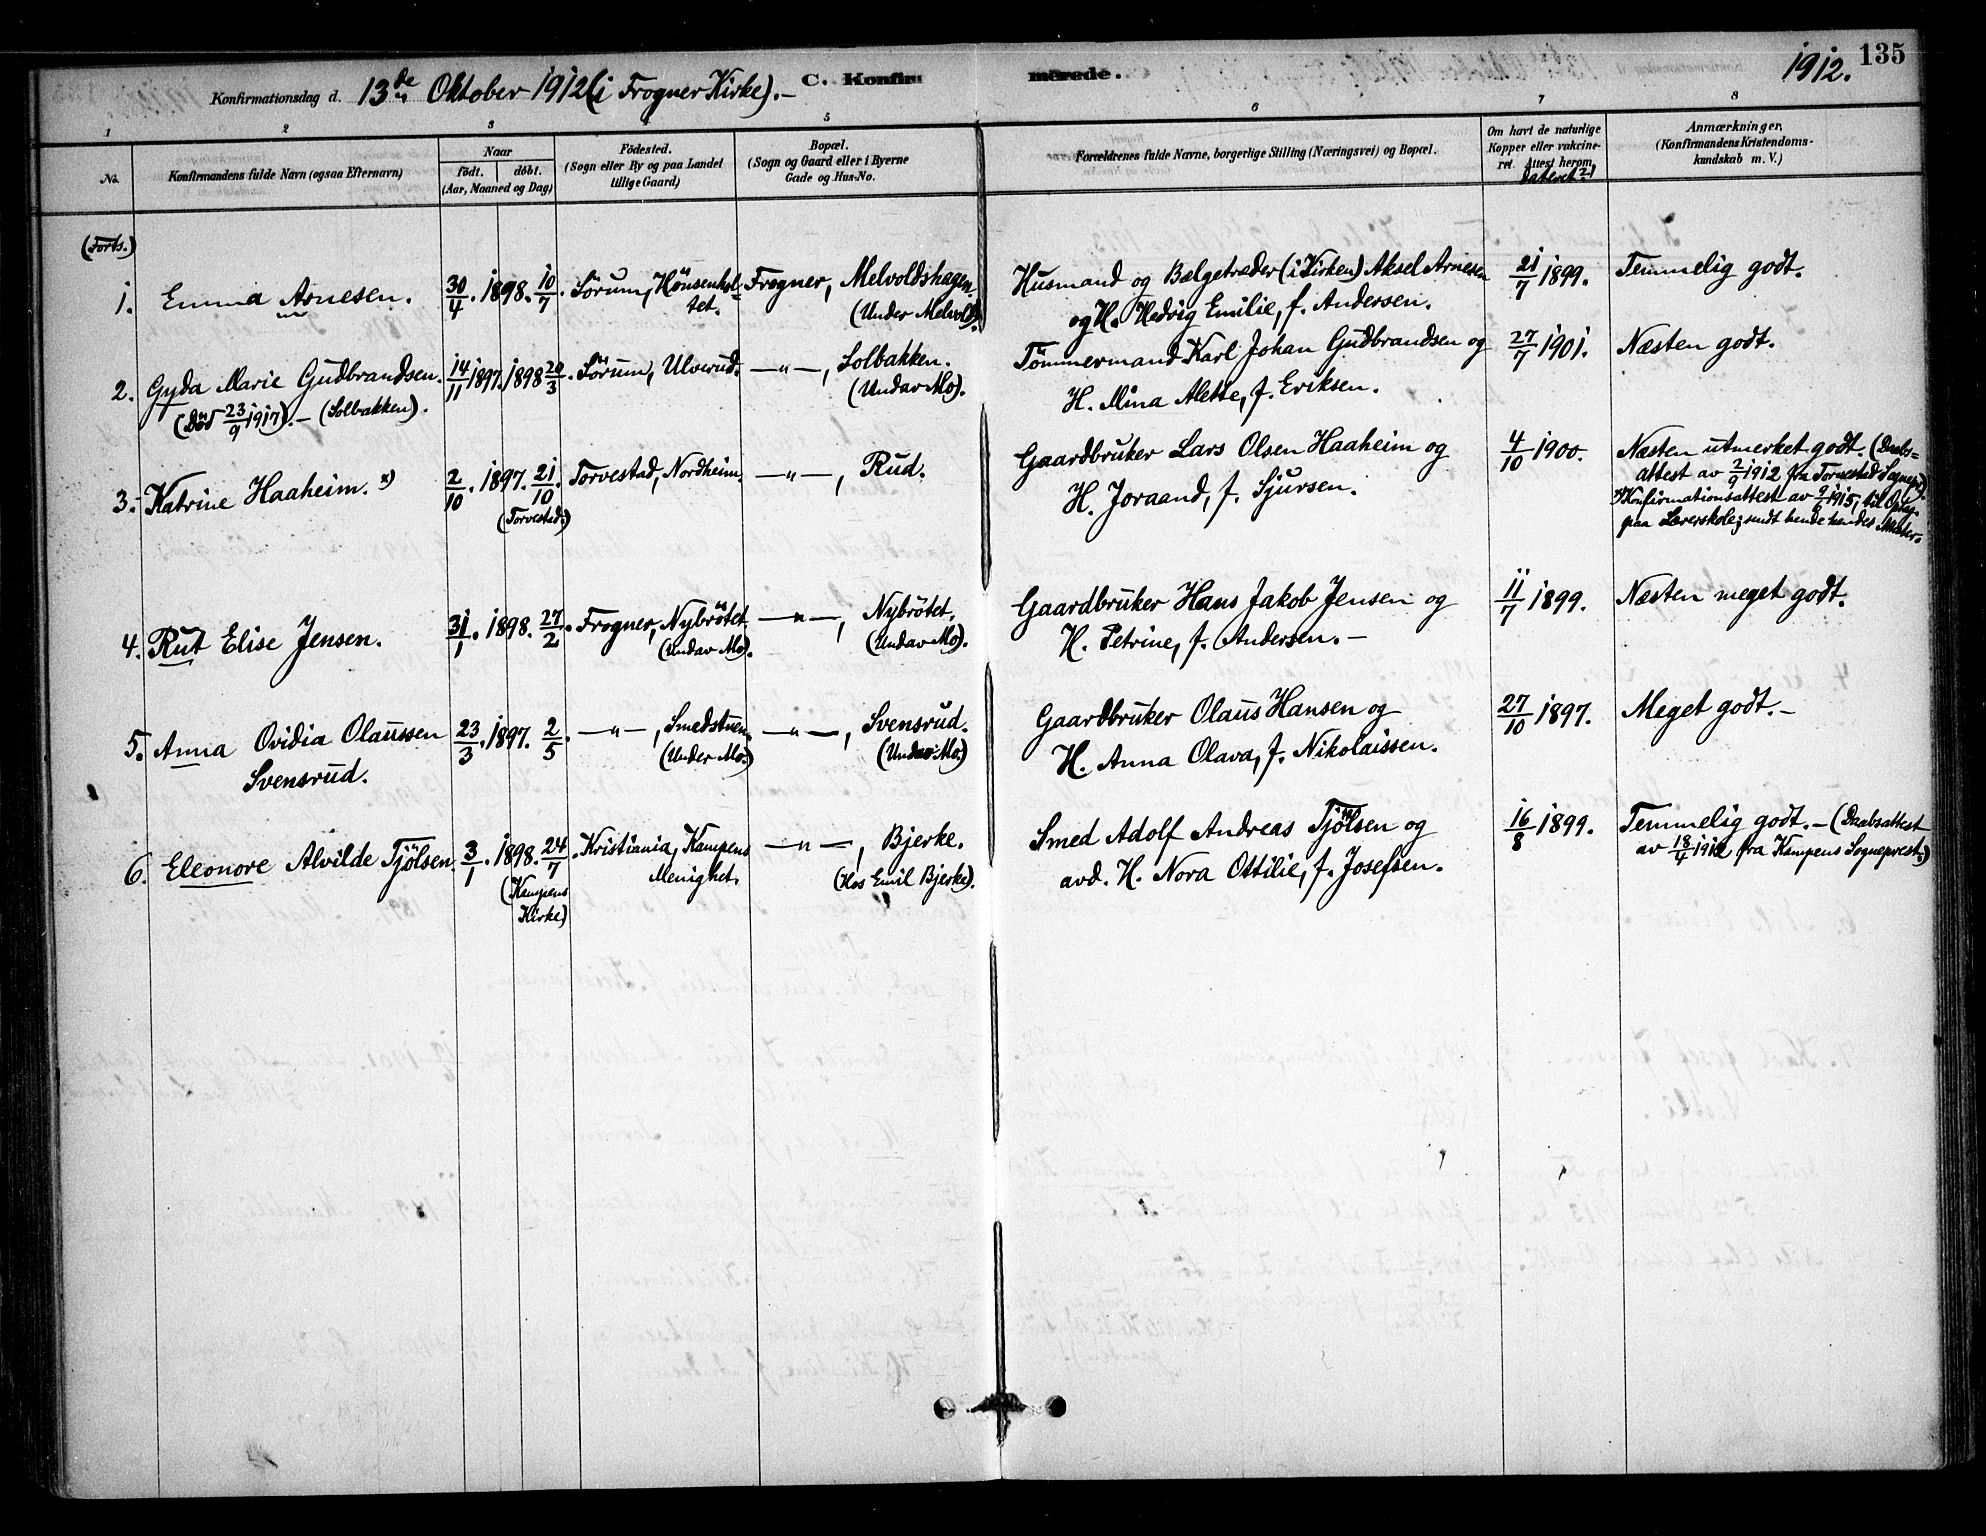 135
1912.
Konfirmationsdag d. 13de Oktober 1912 (i Frogner Kirke). –
C. Konfirmerede.
1 2 3 4 5 6 7 8
No.
Konfirmandens fulde Navn (ogsaa Efternavn)
Naar
födt. döbt.
(Aar, Maaned og Dag)
Födested.
(Sogn eller By og paa Landet
tillige Gaard)
Bopæl.
(Sogn og Gaard eller i Byerne
Gade og Hus-No.
Forældrenes fulde Navne, borgerlige Stilling (Næringsvei) og Bopæl.
Om havt de naturlige
Kopper eller vakcine-
ret. Attest herom
dateret
Anmærkninger,
(Konfirmandens Kristendoms-
kundskab m. V.)
(Forts.)
1. Emma Arnesen. 30/4. 1898. 10/7. Sörum, Hönsenhol-
tet. Frogner, Melvoldshagen.
(Under Melvold). Husmand og Bælgetræder (i Kirken) Aksel Arnesen
og H. Hedvig Emilie, f. Andersen. 21/7 1899. Temmelig godt.
2. Gyda Marie Gudbrandsen. 14/11 1897. 1898 20/3. Sörum, Ulverud. —„—, Solbakken.
(Und av Mo). Tömmermand Karl Johan Gudbrandsen og
H. Mina Alette, f. Eriksen. 27/7 1901. Næsten godt.
(Död 23/9 1917). – (Solbakken).
3. Katrine Haaheim. x) 2/10. 1897. 21/10. Torvestad, Nordheim. —„—, Rud.
(Torvestad.) Gaardbruker Lars Olsen Haaheim og
H. Joraand, f. Sjursen. 4/10 1900. Næsten utmerket godt. (Daabs=
attest av 2/9 1912 fra Torvestad Sognepr.).
x) Konfirmationsattest av 9/6 1915, til Optag.
paa Lærerskole; sendt hende hendes
4. Rut Elise Jensen. 31/1. 1898. 27/2. Frogner, Nybrötet
(Und av Mo). —„—, Nybrötet.
(Und av Mo). Gaardbruker Hans Jakob Jensen og
H. Petrine, f. Andersen. – 11/7 1899. Næsten meget godt.
5. Anna Ovidia Olaussen
Svensrud. 23/3. 1897. 2/5. —„—, Smedstuen,
(Under Mo.) —„—, Svensrud.
(Und av Mo.) Gaardbruker Olaus Hansen og
H. Anna Olava, f. Nikolaissen. 27/10 1897. Meget godt. –
6. Eleonore Alvilde Tjölsen. 3/1. 1898. 24/7.
(Kampens
Kirke) Kristiania, Kampens
Menighet. —„—, Bjerke.
(Hos Emil Bjerke). Smed Adolf Andreas Tjölsen og
avd. H. Nora Ottilie, f. Josefsen. 16/8 1899. Temmelig godt. – (Daabsattest
av 18/4 1912 fra Kampens Sogneprest.)